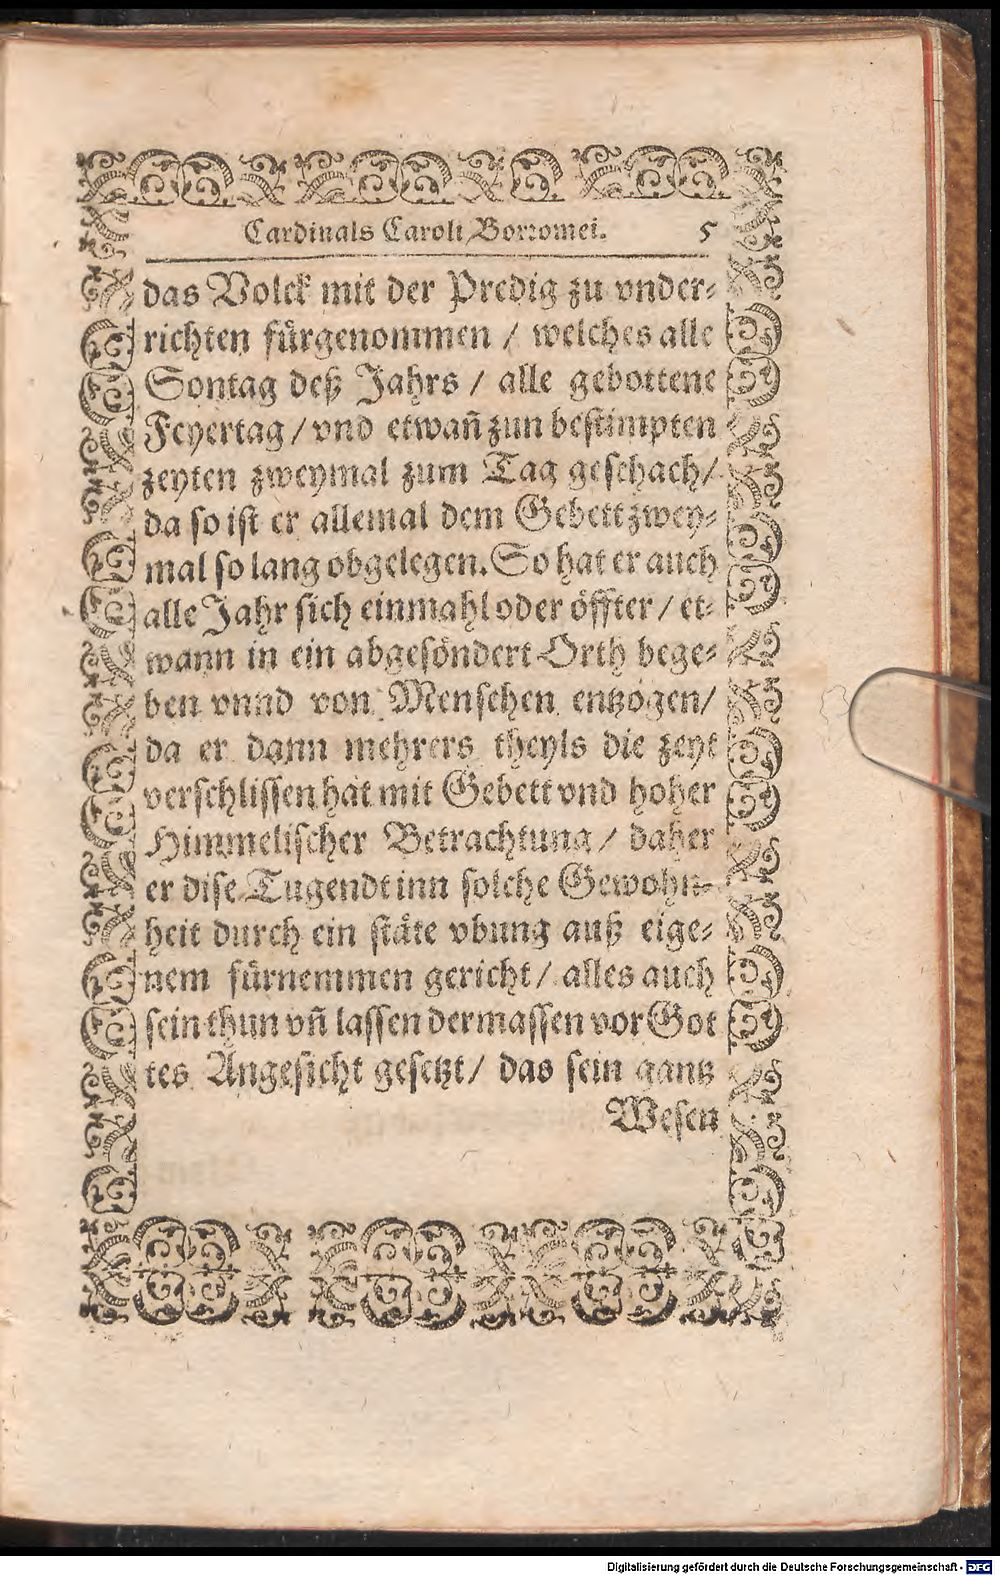 Cardinals Caroli Borromei. 5
das Volck mit der Predig zu vnder-
richten fürgenommen / welches alle
Sontag deß Jahrs / alle gebottene
Feyertag / vnd etwañ zun bestimpten
zeyten zweymal zum Tag geschach /
da so ist er allemal dem Gebett zwey-
mal so lang obgelegen. So hat er auch
alle Jahr sich einmahl oder öffter / et-
wann in ein abgesöndert Orth bege-
ben vnnd von Menschen entzogen /
da er dann mehrers theyls die zeyt
verschlissen hat mit Gebett vnd hoher
Himmelischer Betrachtung / daher
er dise Tugendt inn solche Gewohn-
heit durch ein stäte vbung auß eige-
nem fürnemmen gericht / alles auch
sein thun vñ lassen dermassen vor Got
tes Angesicht gesetzt / das sein gantz
Wesen
Digitalisierung gefördert durch die Deutsche Forschungsgemeinschaft - DFG